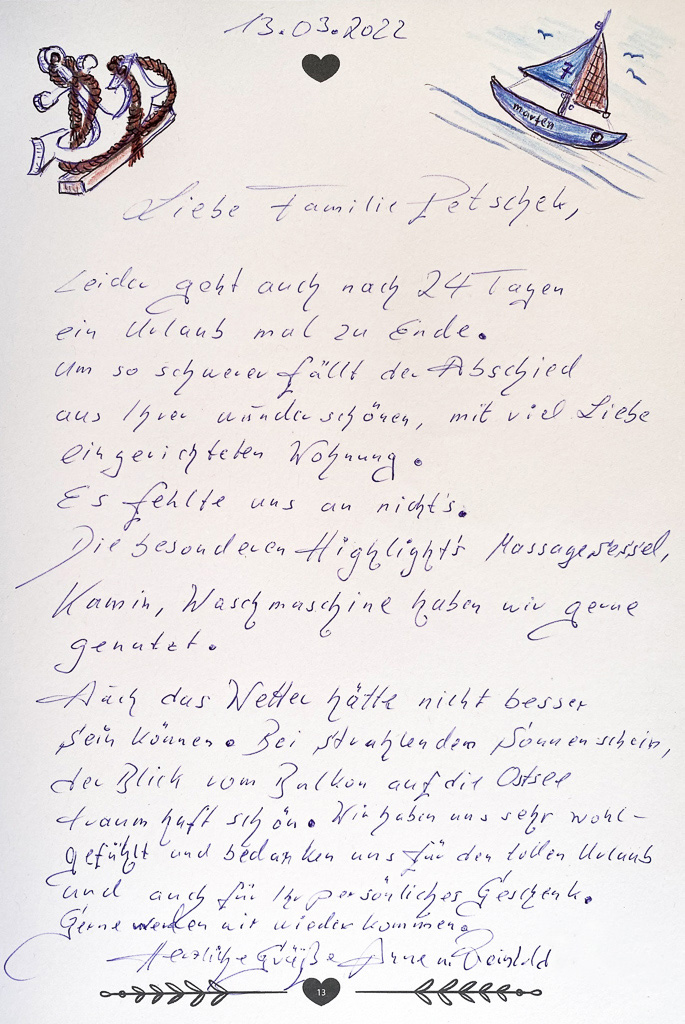 13.03.2022
7
morten
Liebe Familie Petschek,
Leider geht auch nach 24 Tagen
ein Urlaub mal zu Ende.
Um so schwerer fällt der Abschied
aus Ihrer wunderschönen, mit viel Liebe
eingerichteten Wohnung.
Es fehlte uns an nicht's.
Die besonderen Highlight's Massagesessel,
Kamin, Waschmaschine haben wir gerne
genutzt.
Auch das Wetter hätte nicht besser
sein können. Bei strahlendem Sonnenschein,
der Blick vom Balkon auf die Ostsee
traumhaft schön. Wir haben uns sehr wohl-
gefühlt und bedanken uns für den tollen Urlaub
und auch für Ihr persönliches Geschenk.
Gerne werden wir wieder kommen.
Herzliche Grüße Anne u. Reinhold
13